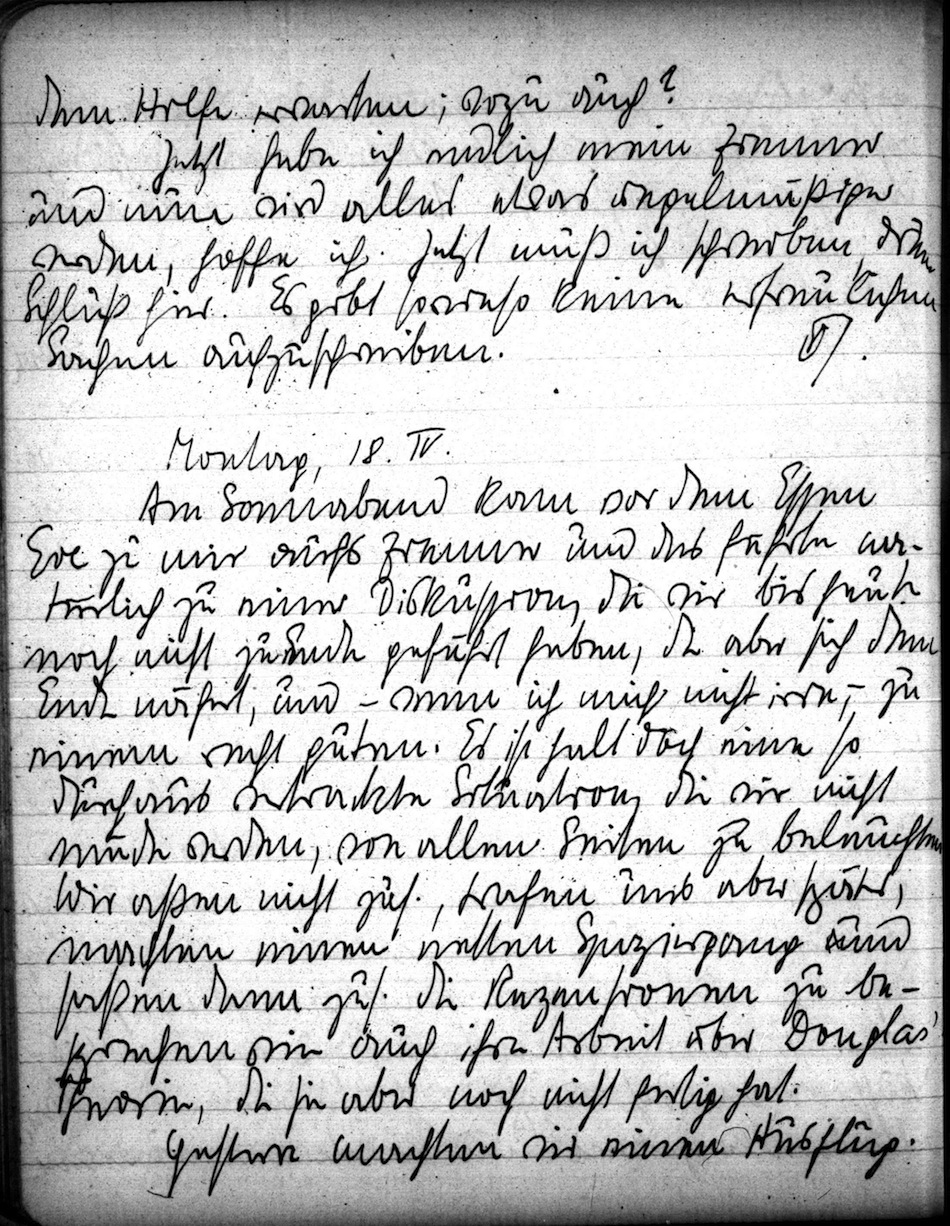 dem Hilfe erwarten; wozu auch?
Jetzt habe ich endlich mein Zimmer
und nun wird alles etwas regelmäßiger
werden, hoffe ich. Jetzt muß ich schreiben, drum
Schluß hier. Es gibt sowieso keine erfreulichen
Sachen aufzuschreiben.
Montag, 18. IV.
Am Sonnabend kam vor dem Essen
Eve zu mir aufs Zimmer und das führte na-
türlich zu einer Diskussion, die wir bis heute
noch nicht zuende geführt haben, die aber sich dem
Ende nähert, und – wenn ich mich nicht irre, – zu
einem recht guten. Es ist halt doch eine so
durchaus vertrackte Situation, die wir nicht
müde werden, von allen Seiten zu beleuchten.
Wir aßen nicht zus., trafen uns aber später,
machten einen netten Spaziergang und
saßen dann zus. die Rezensionen zu be-
sprechen wie auch ihre Arbeit über Douglas'
Theorie, die sie aber noch nicht fertig hat.
Gestern machten wir einen Ausflug.